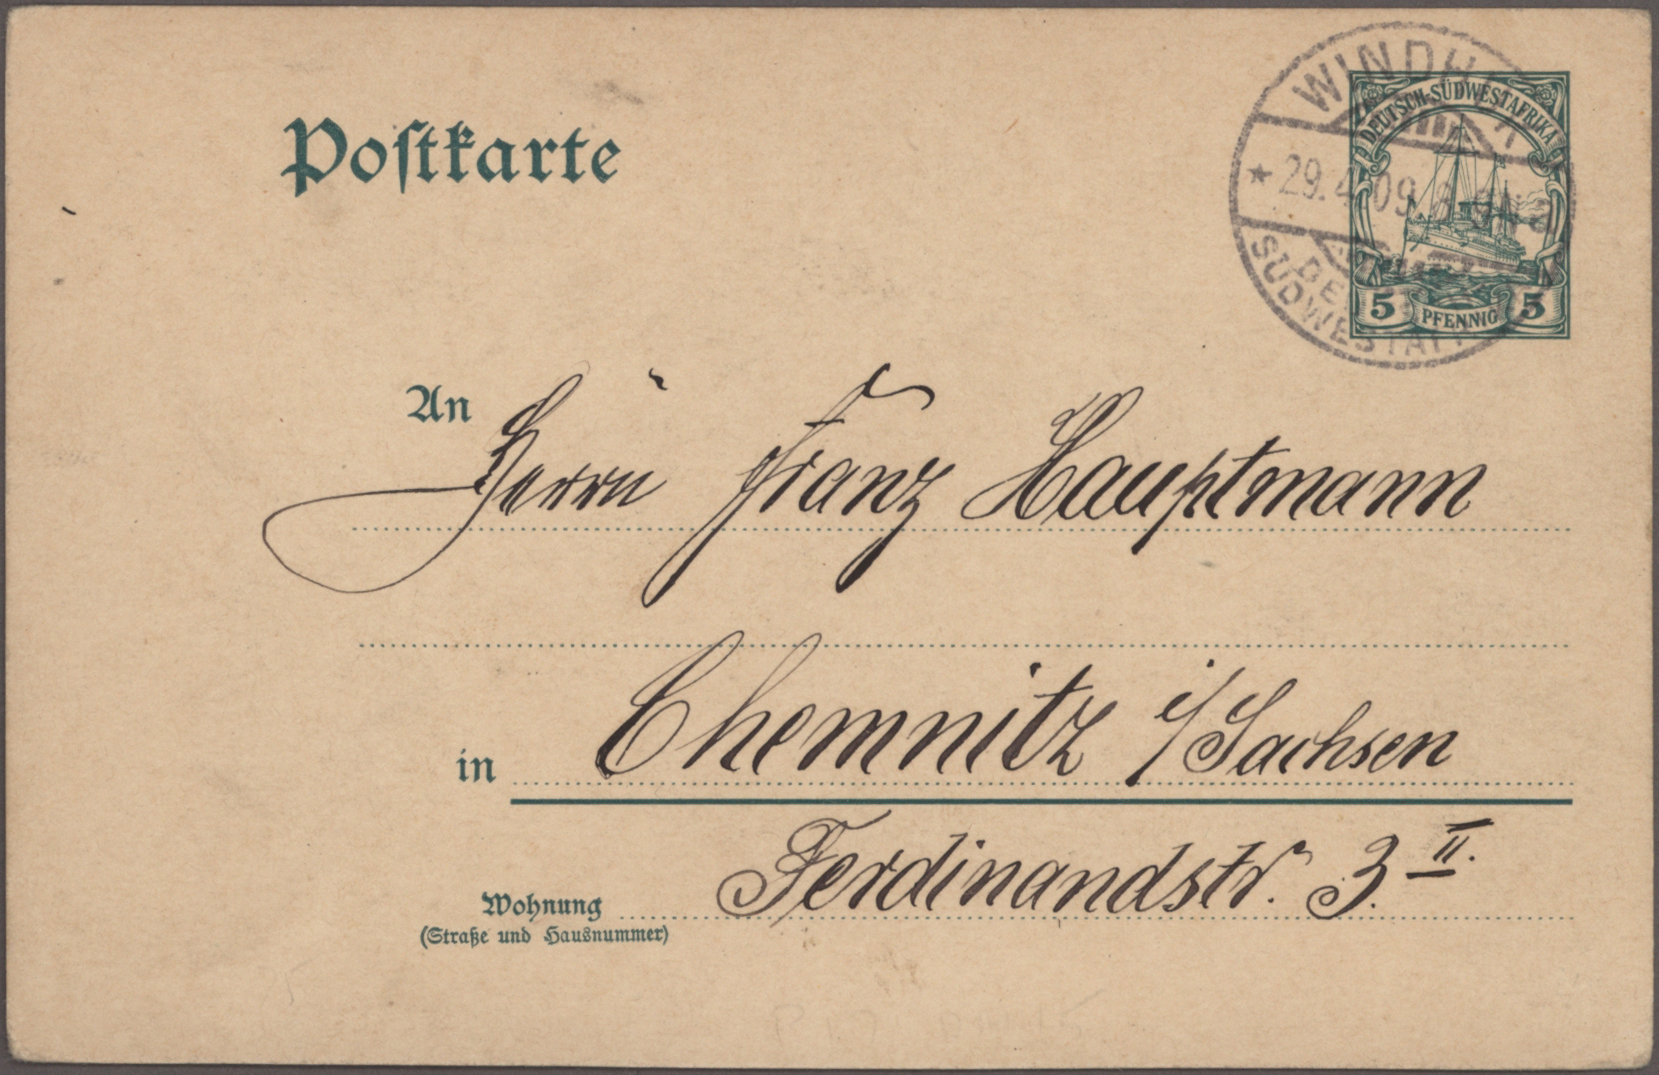 Postkarte
WINDHUK
* 29.4.09. 8-9N a
DEUTSCH-
SÜDWESTAFRIKA
DEUTSCH-SÜDWESTAFRIKA
5 PFENNIG 5
An Herrn Franz Hauptmann
in Chemnitz i/Sachsen
Ferdinandstr. 3. II.
Wohnung
(Straße und Hausnummer)